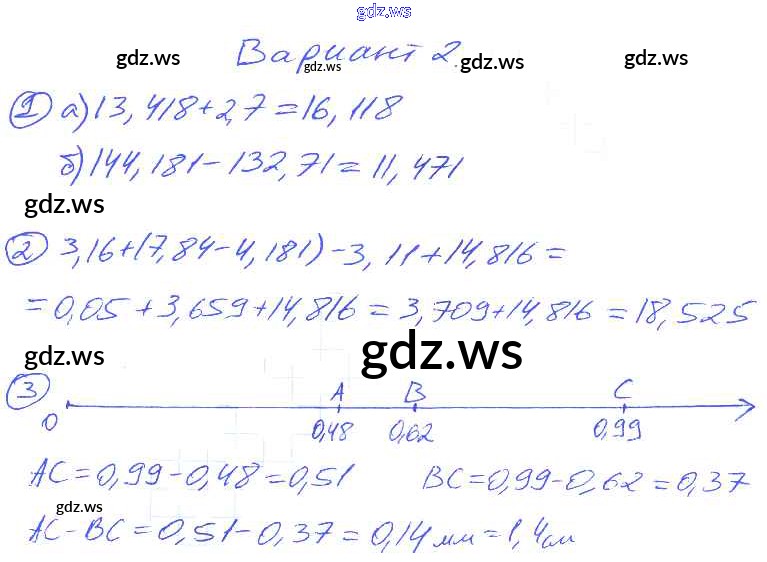 gdz.ws
Вариант 2.
gdz.ws gdz.ws gdz.ws
1 а) 13,418+2,7=16,118
б) 144,181-132,71=11,471
gdz.ws
2 3,16+(7,84-4,181)-3,11+14,816=
=0,05+3,659+14,816=3,709+14,816=18,525
gdz.ws gdz.ws
3 A B C
0 0,48 0,62 0,99
AC=0,99-0,48=0,51 BC=0,99-0,62=0,37
gdz.ws gdz.ws
AC-BC=0,51-0,37=0,14мм=1,4см